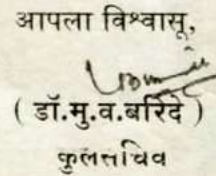 आपला विश्वासू,
( डॉ.मु.व.बरिदे )
कुलसचिव